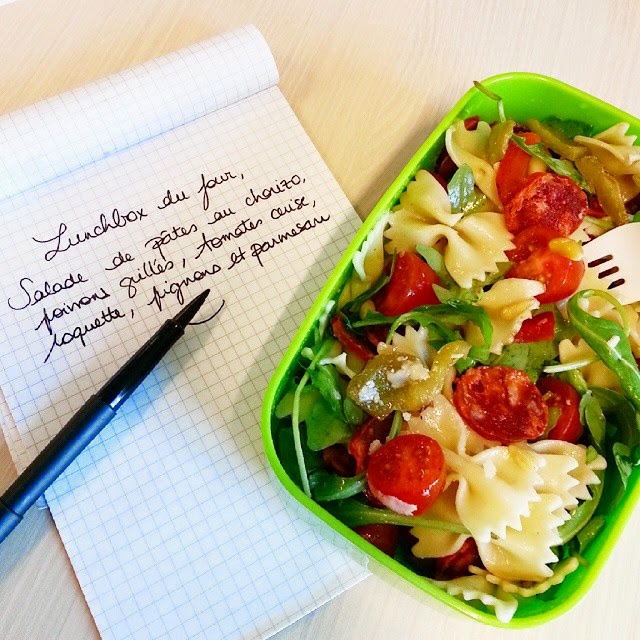 Lunchbox du jour,
Salade de pâtes au chorizo,
poivrons grillés, tomates cerise,
roquette, pignons et parmesan